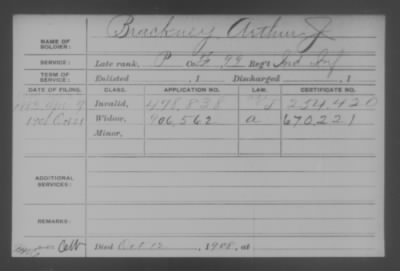 NAME OF SOLDIER: Brackney Arthur J
SERVICE: Late rank, P Co. F, 99 Reg't Ind Inf
TERM OF SERVICE: Enlisted , 1 Discharged , 1
DATE OF FILING. CLASS. APPLICATION NO. LAW. CERTIFICATE NO.
Invalid, 478,838 254,420
1908 Oct 21 Widow, 906,562 a 670,221
Minor,
ADDITIONAL SERVICES:
REMARKS:
Died Oct 12, 1908, at